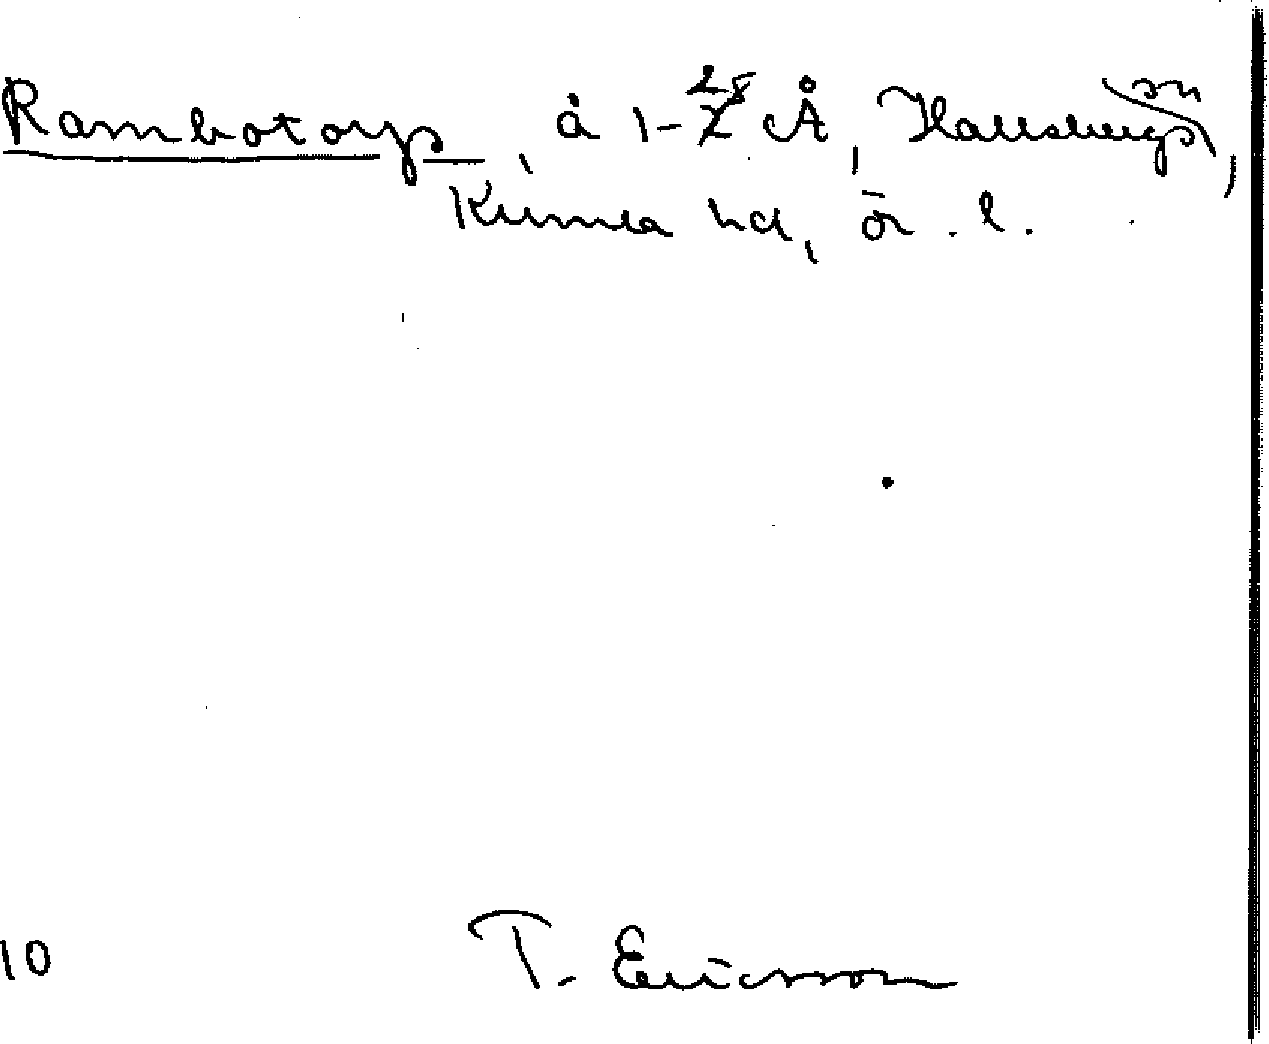 Rambotorp, å 1-28 Å, Hallsbergs sn,
Kumla hd, ör. l.
10 T. Ericsson